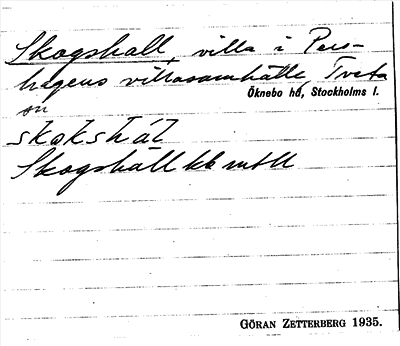 Skogshall, villa i Pers-
hagens villasamhälle, Tveta
sn Öknebo hd, Stockholms l.
skokshál
Skogshäll kk mtll
GÖRAN ZETTERBERG 1935.